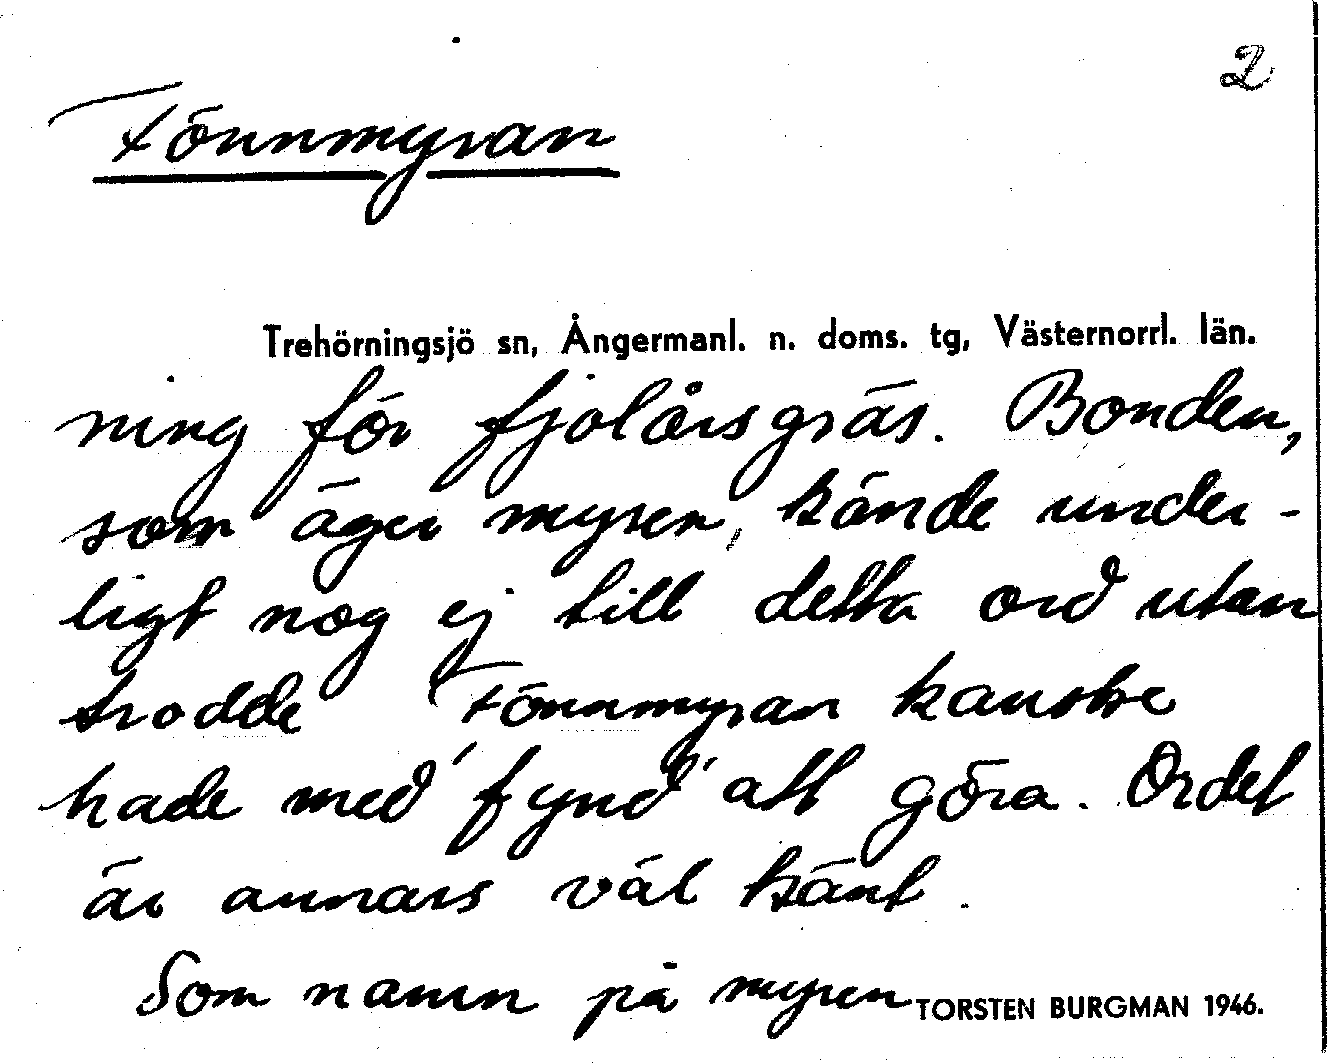 2
Fönnmyran
Trehörningsjö sn, Ångermanl. n. doms. tg, Västernorrl. län.
ning för fjolårsgräs. Bonden,
som äger myren, kände under-
ligt nog ej till detta ord utan
trodde Fönnmyran kanske
hade med 'fynd' att göra. Ordet
är annars väl känt.
Som namn på myren
TORSTEN BURGMAN 1946.